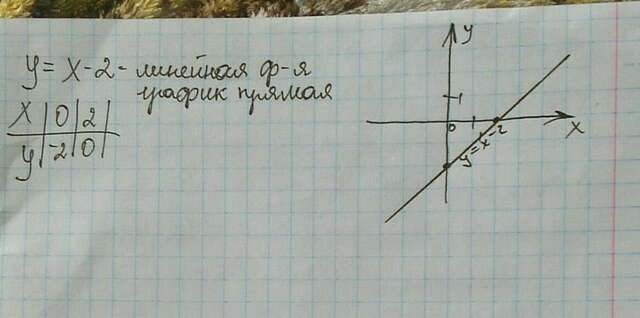 y = x - 2 - линейная ф-я
график прямая
x | 0 | 2 |
y | -2 | 0 |
y
1
0
x
y = x - 2